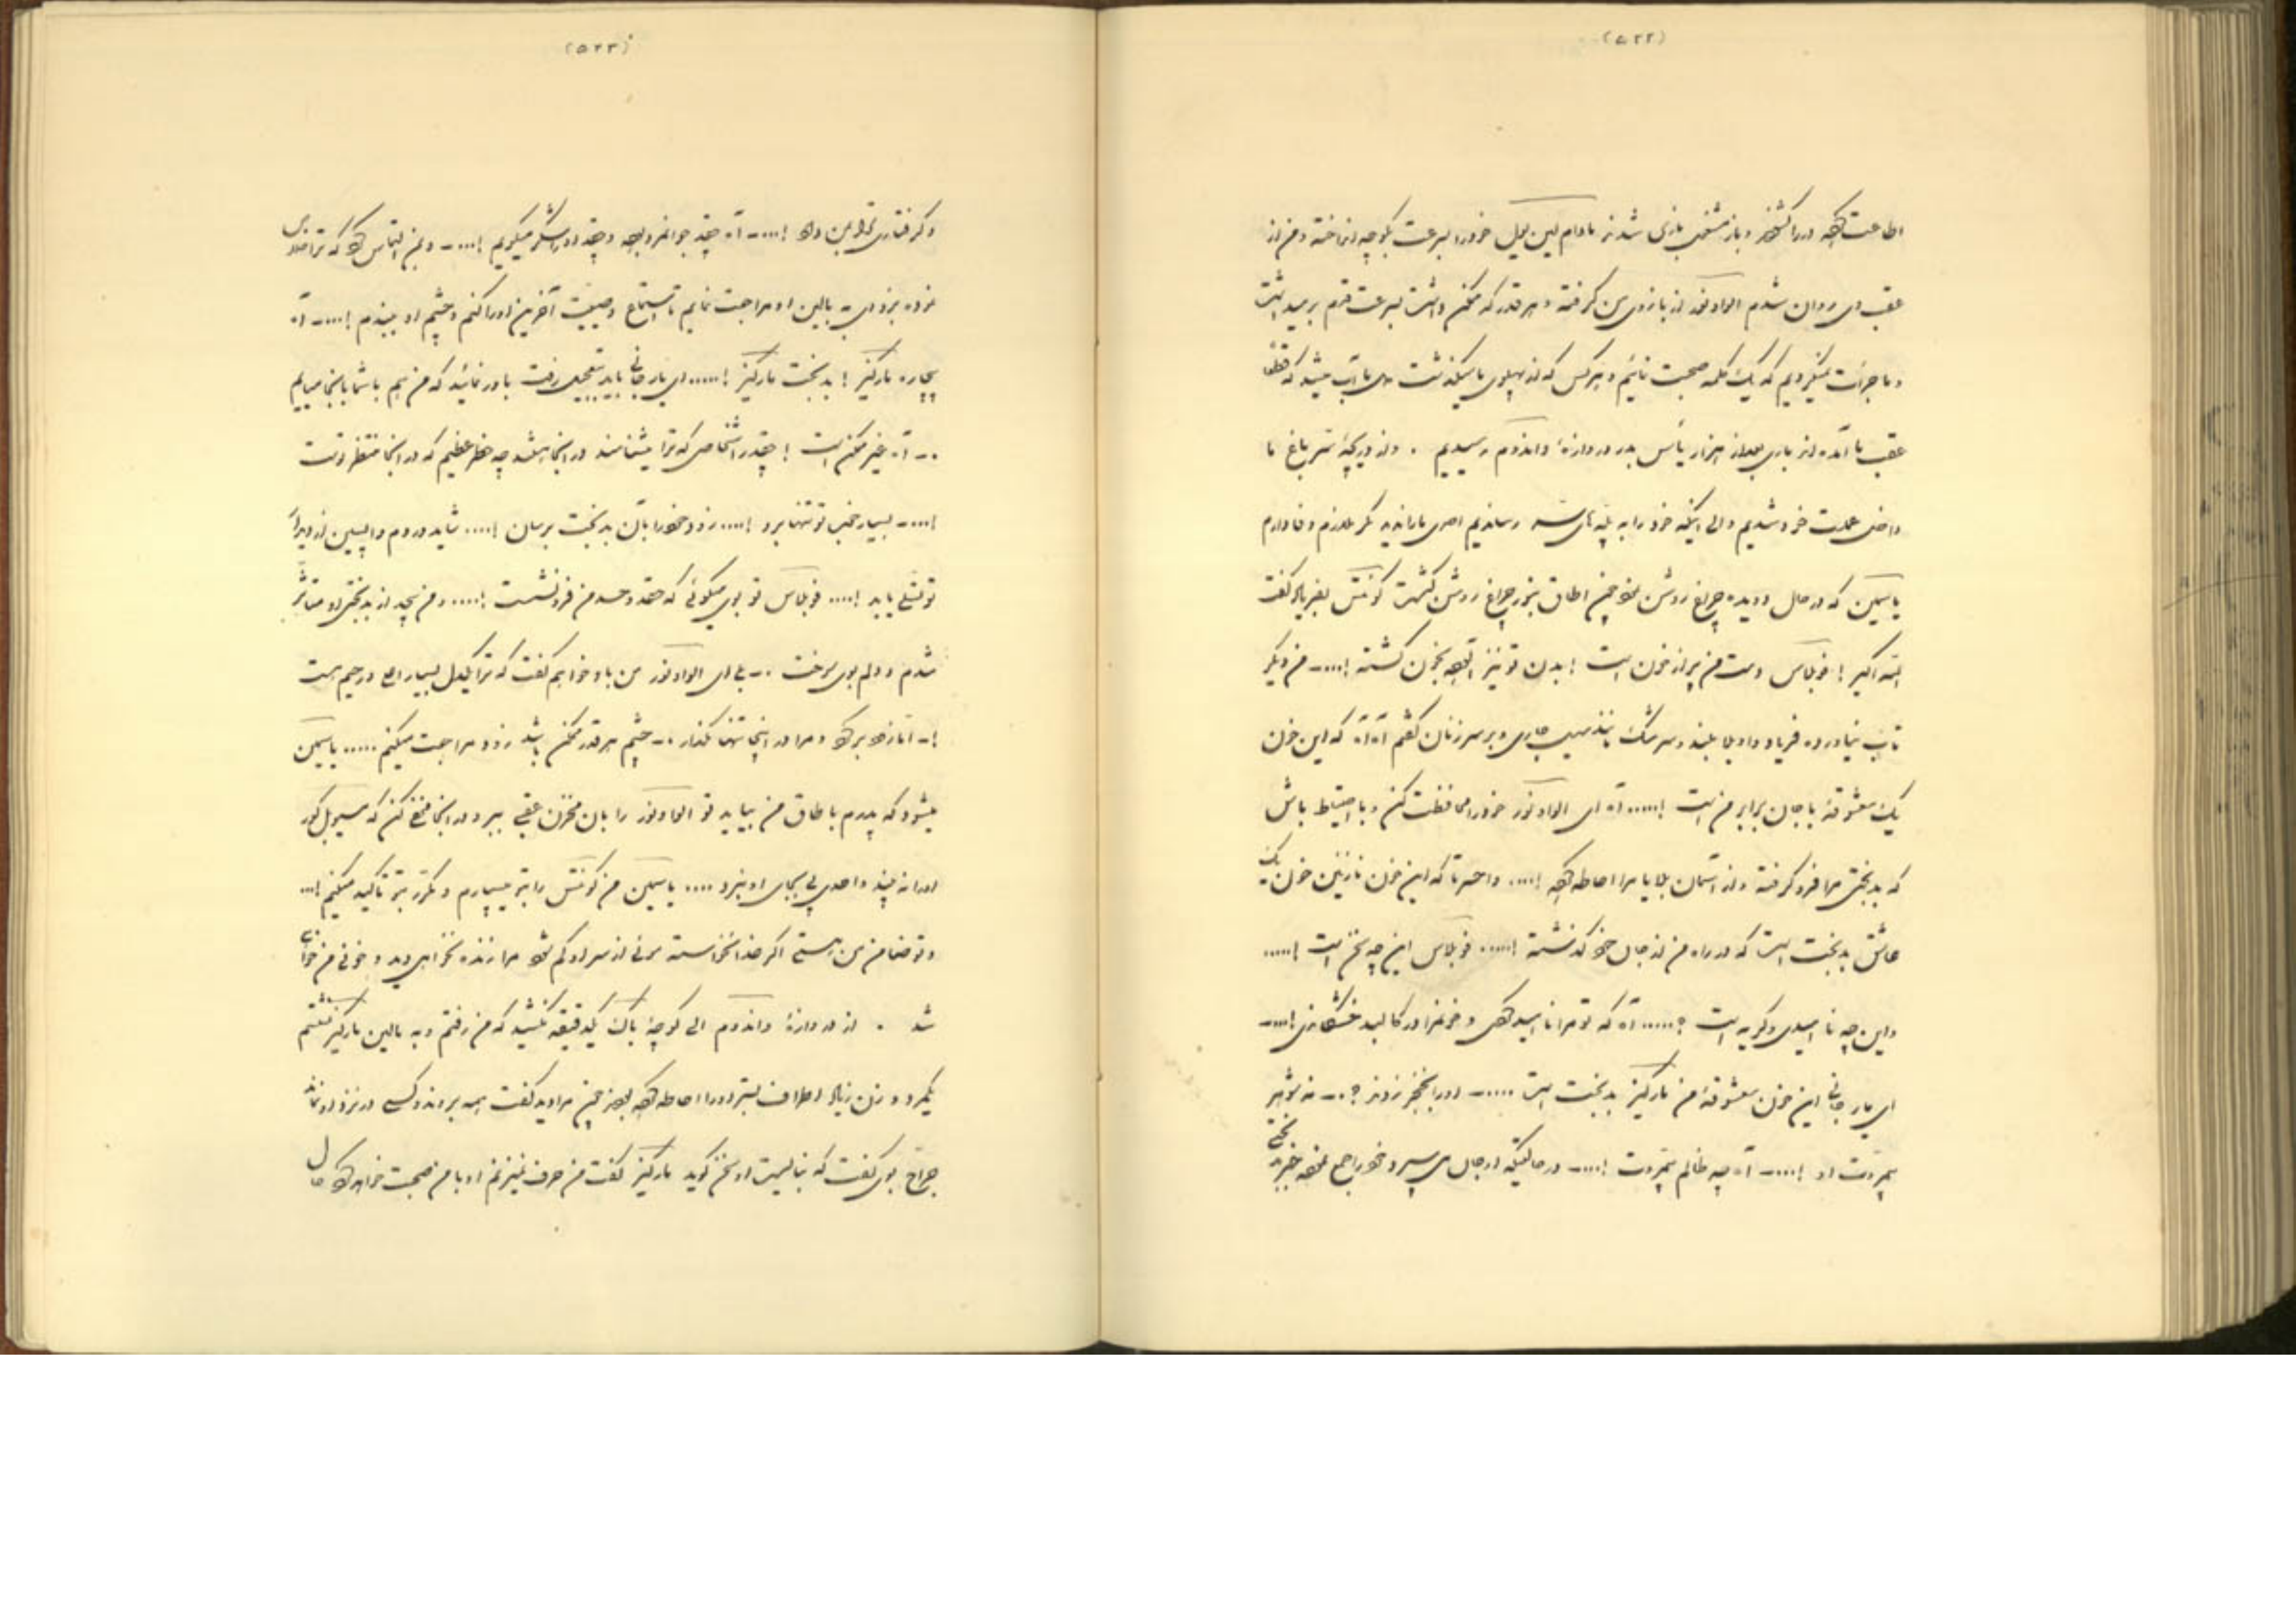 (۵۲۲)
اطاعت کرده در را گشودند و باز مشغول بازی شدند مادام لین خود را بسرعت بکوچه انداخته و من از
عقب وی روان شدم الوادونور از بازوی من گرفته و هر قدر که ممکن داشت بسرعت قدم برمیداشت
و ما جرأت نمیکردیم که یک کلمه صحبت نمائیم و هر کس که از پهلوی ما میگذشت دل ما آب میشد که
عقب ما آمده از باری بعد از هزار یأس بدر دروازهٔ واندوم رسیدیم . و از دریچهٔ سر باغ ما
داخل عمارت خود شدیم والی اینکه خود را به پله های رساندیم احدی ما را ندید مگر ملازم وفادارم
یاسمین که در حال دویده چراغ روشن نمود چون اطاق بنور چراغ روشن گشت کونتس بفریاد گفت
الله اکبر ! دوبلاس دست من پر از خون است ! بدن تو نیز آلوده بخون گشته !.... من دیگر
تاب نیاورده فریاد واویلا بلند و سرشک مانند سیل جاری و بر سر زنان گفتم آه آه که این خون
یک معشوقهٔ با جان برابر من است !..... آه ای الوادونور خود را محافظت کن و با احتیاط باش
که بدبختی مرا فرو گرفته و از آسمان بلایا مرا احاطه کرده !.... واحسرتا که این خون نازنین خون یک
عاشق بدبخت است که در راه من از جان خود گذشته !..... دوبلاس این چه سخن است !.....
و این چه ناامیدی و گریه است ؟..... آه که تو مرا ناامید کردی و خونم را در کالبد خشکاندی !....
ای یار جانی این خون معشوقهٔ من مارکیز بدبخت است ..... او را بخنجر زدند ؟.. نه شوهر
بیمروت او !.... آه چه ظالم بیمروت !.... در حالتیکه او جان می سپرد و خود را جمع نموده خبر بدبختی
(۵۲۳)
و گرفتاری ترا بمن داد !.... آه چقدر جوانمرد بوده و چقدر او را شکر میگویم !.... و بمن التماس کرد که ترا خلاص
نموده بزودی به بالین او مراجعت نمایم تا استماع وصیت آخرین او را کنم و چشم او ببندم !.... آه
بیچاره مارکیز ! بدبخت مارکیز !..... ای یار جانی باید بتعجیل رفت باور نمائید که من هم با شما بآنجا میایم
.. آه غیر ممکن است ! چقدر اشخاصی که ترا میشناسند در آنجا هستند چه خطر عظیم که در آنجا منتظر تست
!.... بسیار خوب تو تنها برو !.... زود خود را بآن بدبخت برسان !.... شاید در دم واپسین از دیدار
تو تسلی یابد !.... دوبلاس تو بوی میگوئی که حقد و حسد من فرو نشست !.... و من بیحد از بدبختی او متأثر
شدم و دلم بوی سوخت .. بلی ای الوادونور من باو خواهم گفت که ترا یک دل بسیار و رحیم است
!.. و مرا در اینجا تنها مگذار .. چشم هر قدر ممکن باشد زود مراجعت میکنم ..... یاسمین
میشود که پدرم باطاق من بیاید تو الوادونور را بآن مخزن عقبی ببر و در آنجا مخفی کن که
او را نه بیند و احدی پی بجای او نبرد .... یاسمین من کونتس را بتو میسپارم و مکرر بتو تأکید میکنم !...
و تو ضامن من هستی اگر خدا نخواسته موئی از سر او کم شود مرا زنده نخواهی دید و خونی من خواهی
شد . از دروازهٔ واندوم الی کوچهٔ باک یکدقیقه نکشید که من رفتم و به بالین مارکیز نشستم
یکمرد و زن زیاد اطراف بستر او را احاطه کرده بودند چون مرا دید گفت همه بروند و کسی در نزد او نماند
جراح بوی گفت که نبایست او سخن گوید مارکیز گفت من حرف نمیزنم او با من صحبت خواهد کرد حال